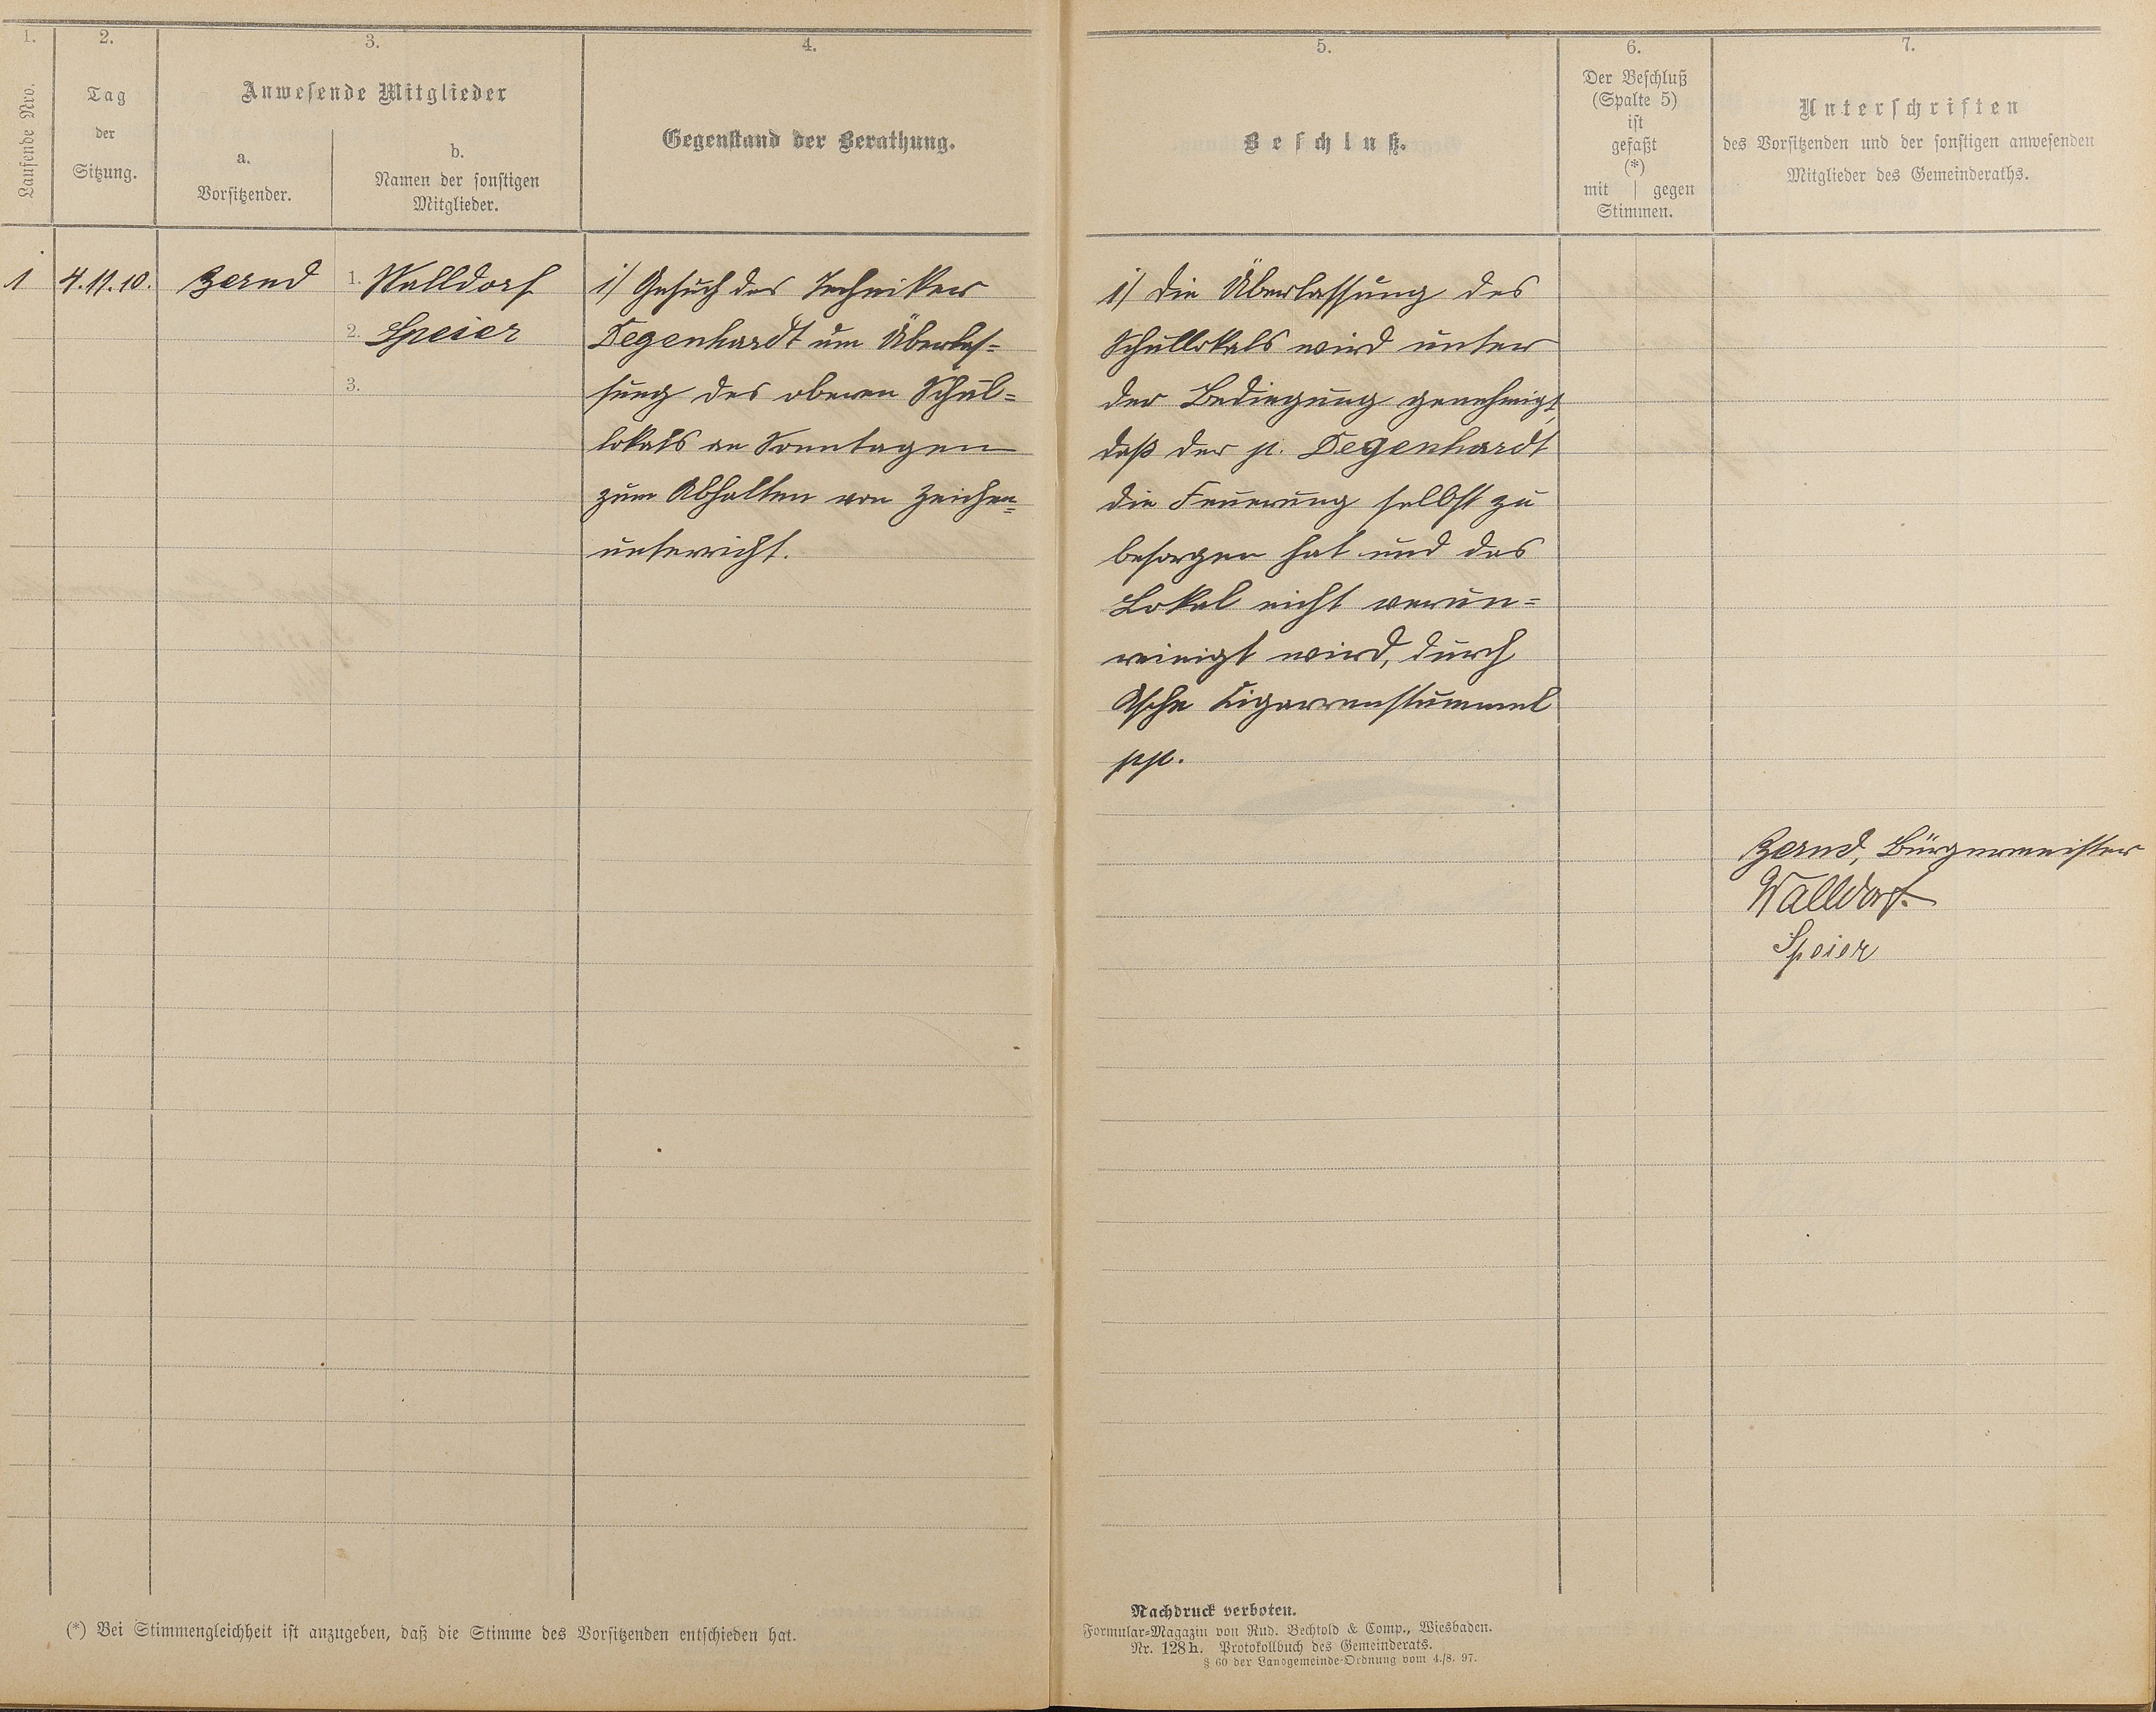 1.
2.
3.
4.
Laufende Nro.
Tag
der
Sitzung.
Anwesende Mitglieder
a.
Vorsitzender.
b.
Namen der sonstigen
Mitglieder.
Gegenstand der Berathung.
1
4.11.10.
Bernd
1. Walldorf
2. Speier
3.
1) Gesuch des Technikers
Degenhardt um Überlas-
sung des oberen Schul-
lokals an Sonntagen
zum Abhalten von Zeichen-
unterricht.
(*) Bei Stimmengleichheit ist anzugeben, daß die Stimme des Vorsitzenden entschieden hat.
5.
6.
7.
Beschluß.
Der Beschluß
(Spalte 5)
ist
gefaßt
(*)
mit | gegen
Stimmen.
Unterschriften
des Vorsitzenden und der sonstigen anwesenden
Mitglieder des Gemeinderaths.
1) Die Überlassung des
Schullokals wird unter
der Bedingung genehmigt,
daß der p. Degenhardt
die Feuerung selbst zu
besorgen hat und das
Lokal nicht verun-
reinigt wird, durch
Asche Zigarrenstummel
pp.
Bernd, Bürgermeister
Walldorf.
Speier
Nachdruck verboten.
Formular-Magazin von Rud. Bechtold & Comp., Wiesbaden.
Nr. 128h. Protokollbuch des Gemeinderats.
§ 60 der Landgemeinde-Ordnung vom 4./8. 97.